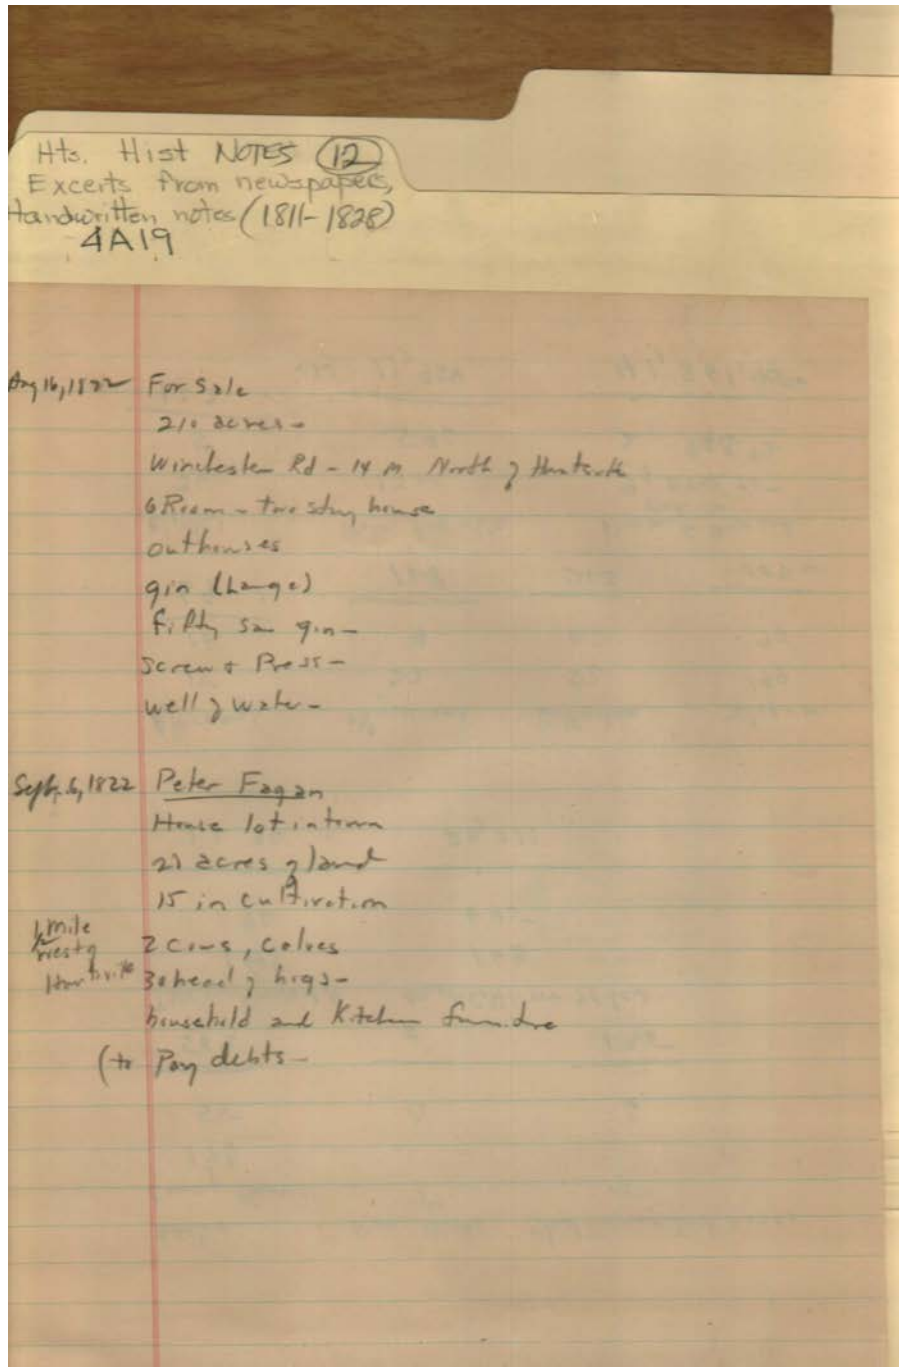 Hts. Hist NOTES 12
Excerts from newspapers,
Handwritten notes (1811-1828)
4A19
Aug 16, 1822 For Sale
210 acres -
Winchester Rd - 14 m North of Huntsville
6 Room - two story house
outhouses
gin (Large)
fifty saw gin -
Screw & Press -
well of water -
Sept. 6, 1822 Peter Fagan
House lot in town
21 acres of land
15 in cultivation
1/2 mile
West of
Huntsville
2 cows, calves
30 head of hogs -
household and Kitchen furniture
(to Pay debts -